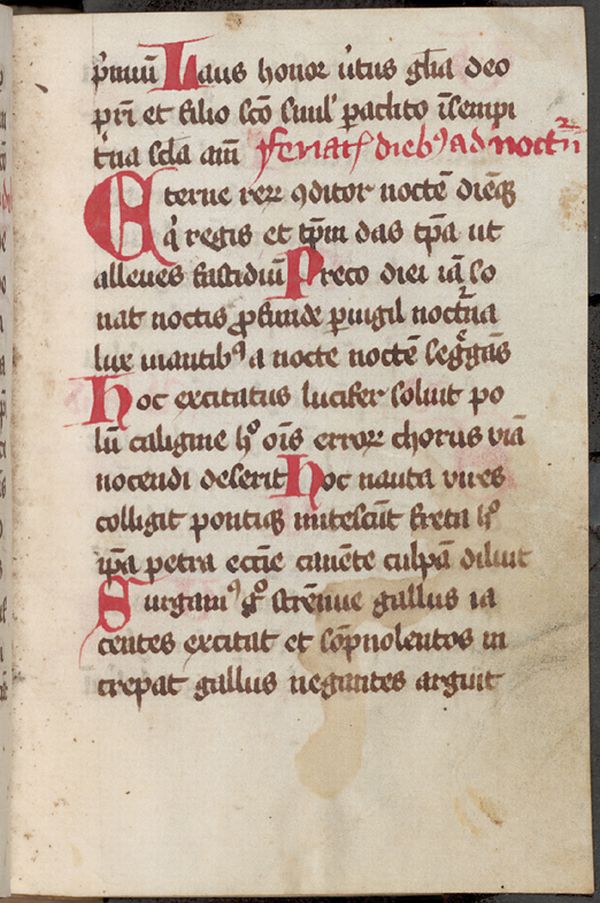 p̓miuū Laus honor u̓tus gl̄ia deo
pr̄i et filio sc̄o simul ꝑaclito ī sempi
t̓na sc̄la am̄ ferial̓ dieb⁹ ad noctn̄
Eterne reꝝ ꝯditor noctē diēqꝫ
q̓ regis et tp̄m das tp̄a ut
alleues fastidiū Preco diei iā so
nat noctis ꝓfunde ꝑuigil noct̓na
lux uiantib⁹ a nocte noctē seg̓gās
hoc excitatus lucifer soluit po
lū caligine hᵒ oīs erroꝝ chorus viā
nocendi deserit hoc nauta vires
colligit pontiqꝫ mitescūt freta hᵒ
ip̄a petra eccīe canēte culpā diluit
Surgam⁹ gᵒ strēnue gallus ia
centes excitat et sōpnolentos in
crepat gallus negantes arguit